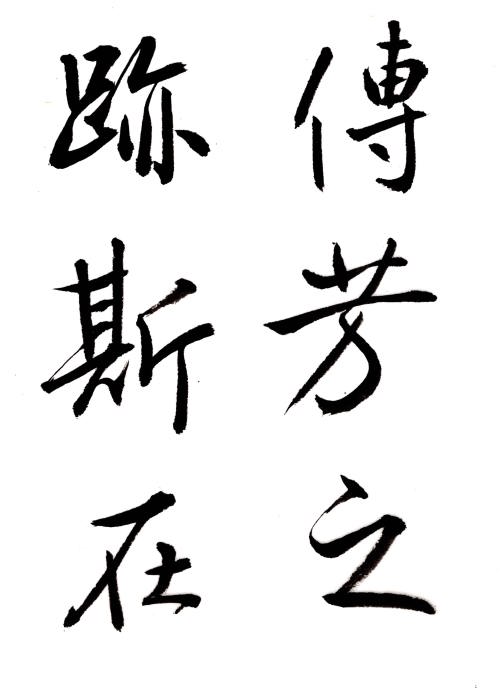 傳芳之
跡斯在